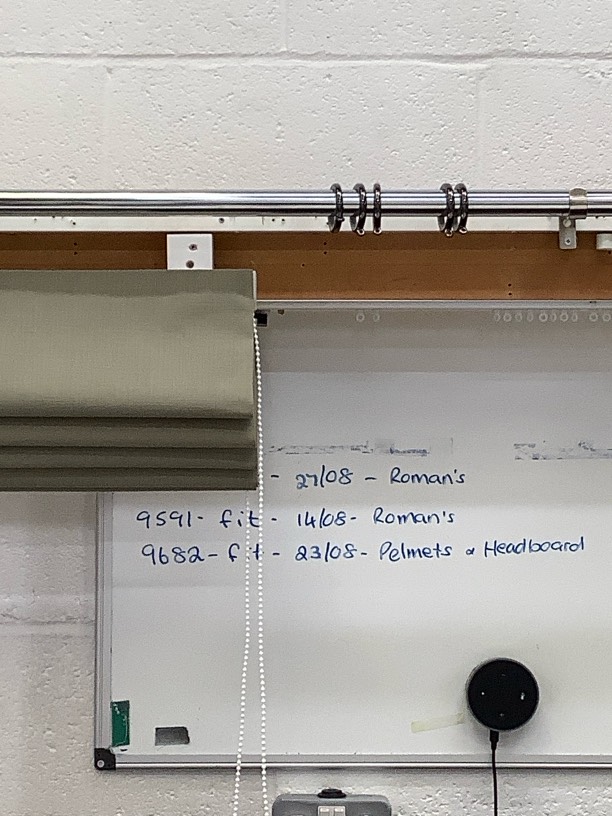 - 27/08 - Roman's
9591- fit - 14/08- Roman's
9682- fit - 23/08- Pelmets & Headboard